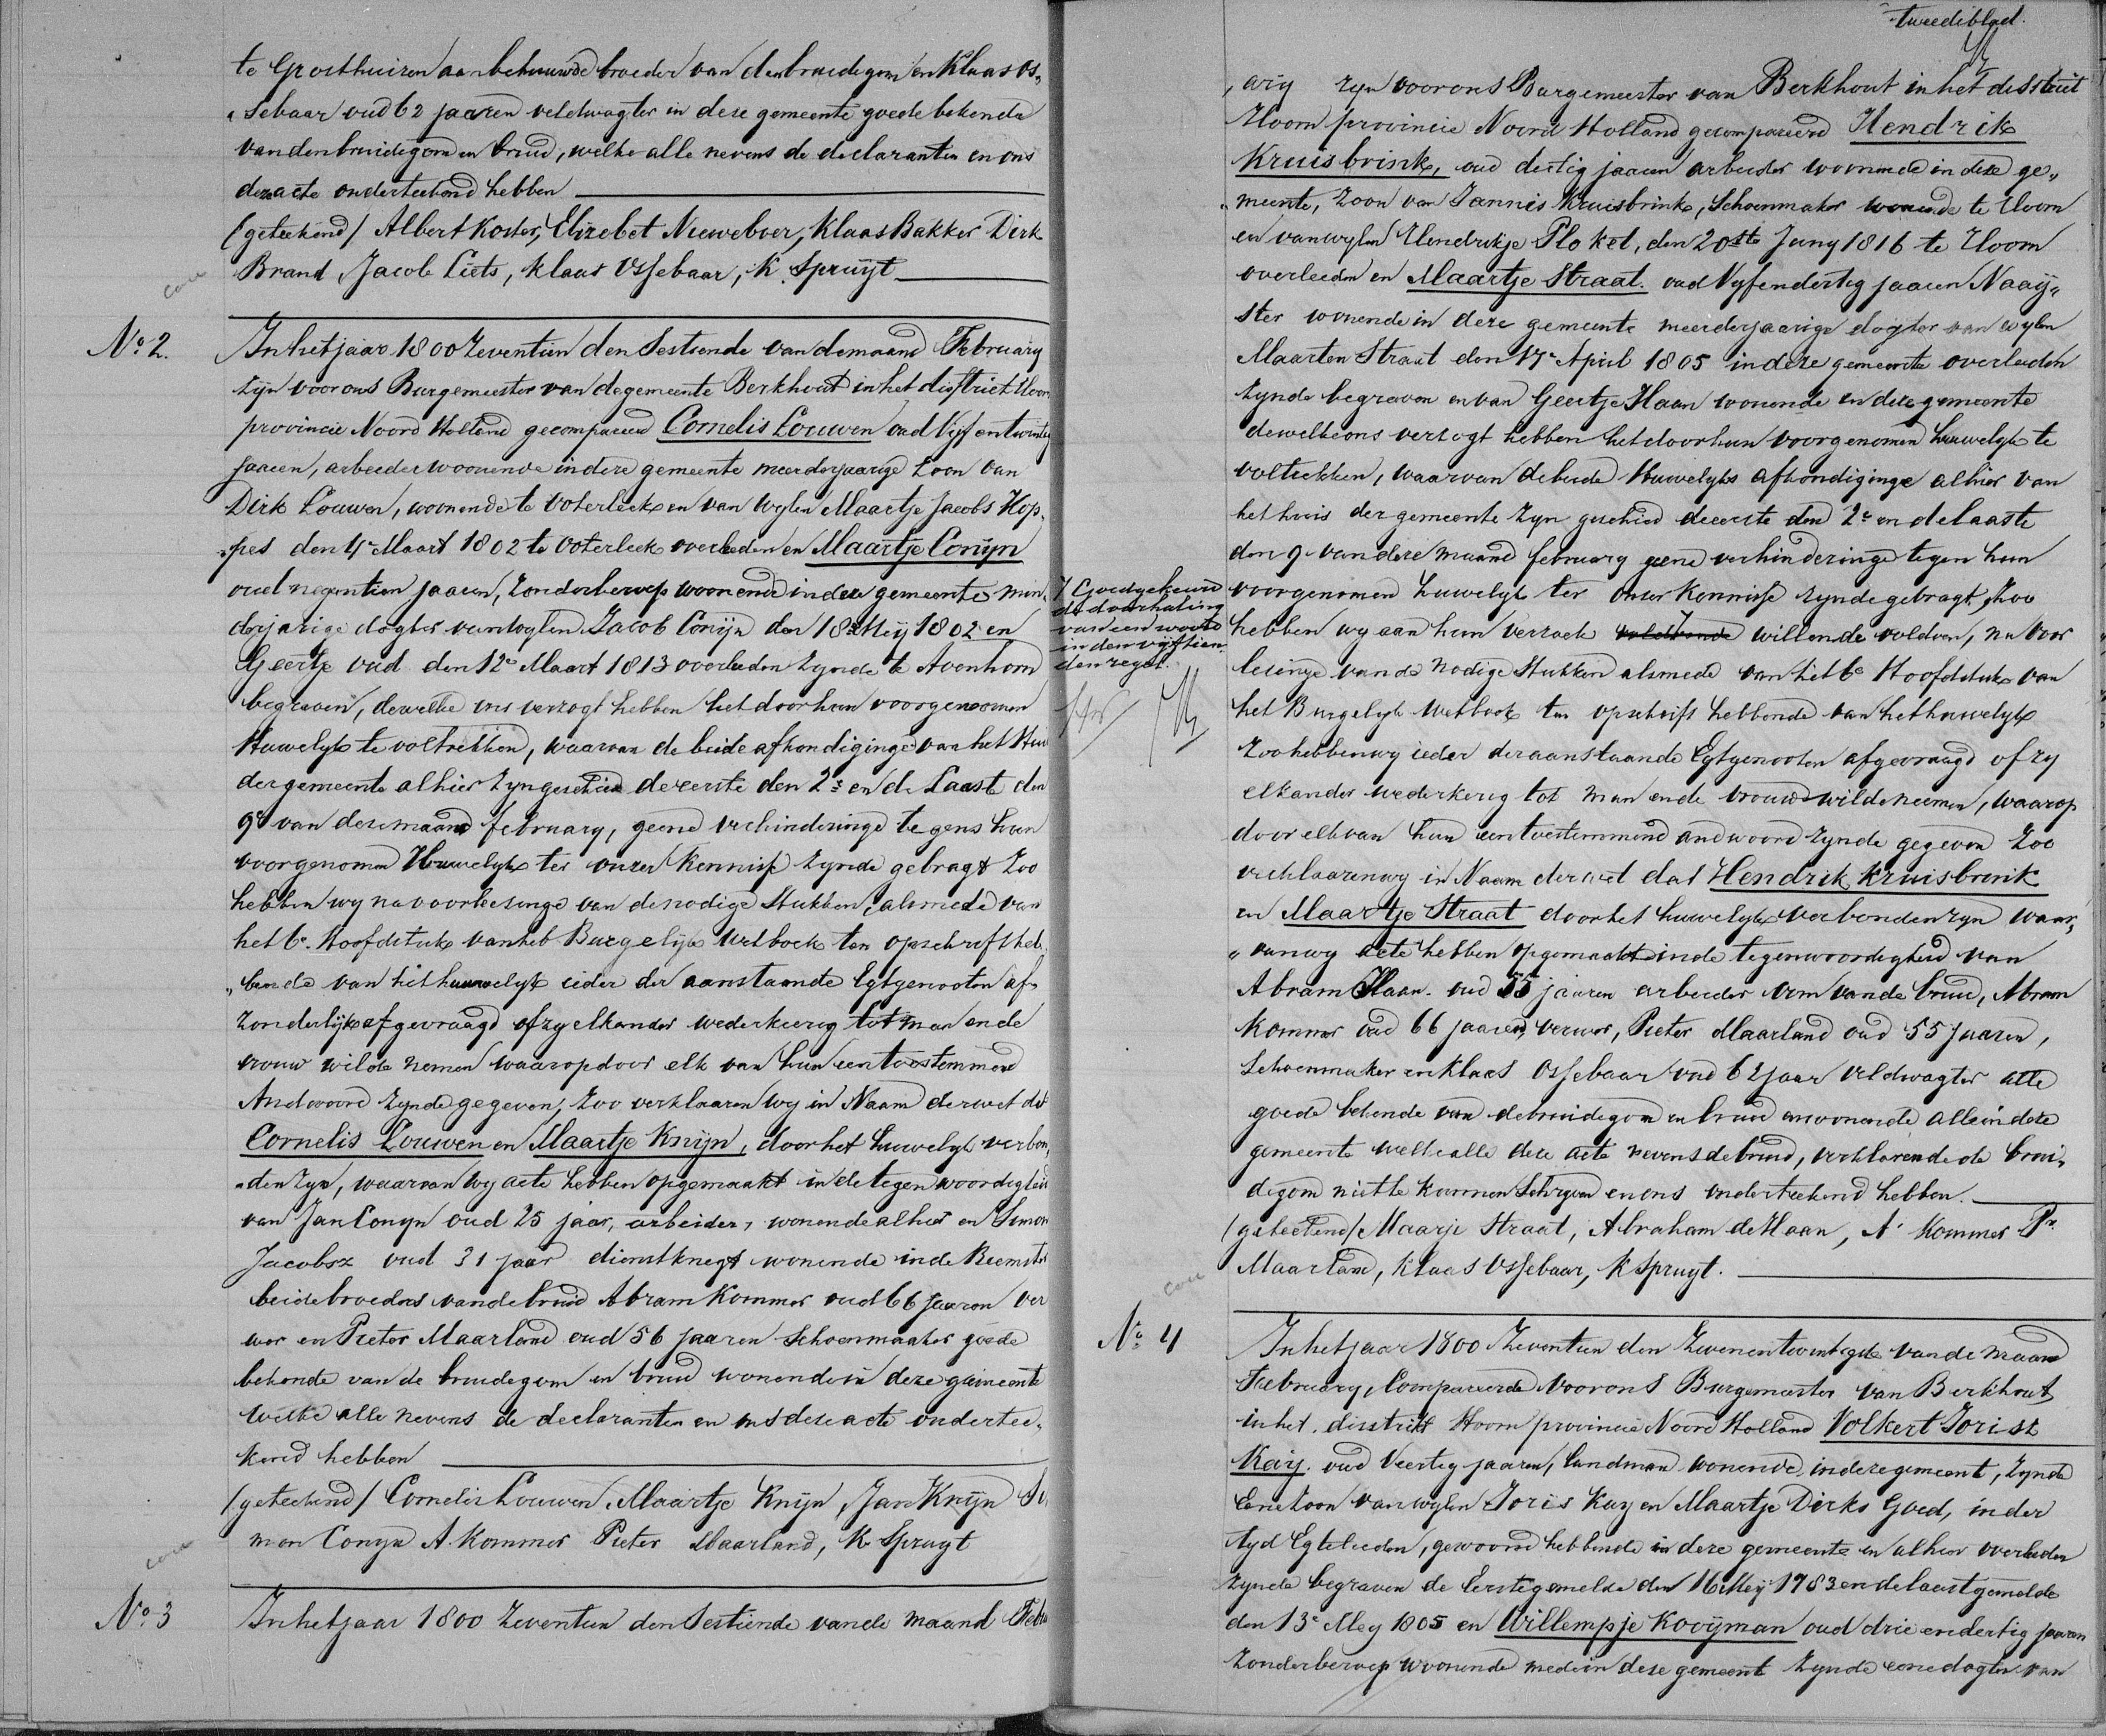 te Grosthuizen aanbehuuwde broeder van den bruidegom en Klaas Os„
„sebaar oud 62 jaaren veldwagter in deze gemeente goede bekende
van den bruidegom en bruid, welke alle nevens de declaranten en ons
deze acte onderteekend hebben
(geteekend) Albert Koster, Elizebet Nieweboer, Klaas Bakker Dirk
Brand, Jacob Liets, Klaas Ossebaar, K. Spruijt
No. 2. In het jaar 1800 Zeventien den Sestiende van de maand February
zijn voor ons Burgemeester van de gemeente Berkhout in het district Hoorn
provincie Noord Holland gecompareerd Cornelis Louwen oud Vijf en twintig
jaaren, arbeider woonende in deze gemeente meerderjaarige Zoon van
Dirk Louwen, woonende te Oterleek en van wylen Maartje Jacobs Hop„
„pes den 4e Maart 1802 te Oterleek overleden en Maartje Conijn
oud negentien jaaren, Zonder beroep woonende in deze gemeente min„
derjarige dogter van wylen Jacob Conijn den 18e Meij 1802 en
Geertje oud den 12e Maart 1813 overleden zynde te Avenhorn
begraven, dewelke ons verzogt hebben het door hun voorgenomen
Huwelyk te voltrekken, waarvan de beide afkondiginge van het Huis
der gemeente alhier zyn geschied de eerste den 2e en de Laast den
9e van deze maand february, geene verhinderinge tegens hun
voorgenomen Huwelyk ter onzer kennisse zynde gebragt Zoo
hebben wy na voorleesinge van de nodige Stukken, alsmede van
het 6e. Hoofdstuk van heb Burgelijk Wetboek ten opschrift heb„
„bende van het huwelyk ieder der aanstaande Egtgenooten af„
zonderlijk afgevraagd of zy elkander wederkeerig tot man en de
vrouw wilde nemen waarop door elk van hun een toestemmend
Andwoord zynde gegeven, Zoo verklaaren Wy in Naam der wet dat
Cornelis Louwen en Maartje Knijn, door het huwelyk verbon„
„den zyn, waarvan wy acte hebben opgemaakt in de tegenwoordigheid
van Jan Conyn oud 25 jaar, arbeider, wonende alhier en Simon
Jacobsz oud 31 jaar dienstknegt wonende in de Beemster
beide broeders van de bruid Abram Kommer oud 66 jaaren ver
wer en Pieter Maarland oud 56 jaaren Schoenmaaker goede
bekende van de bruidegom en bruid wonende in deze gemeente
Welke alle nevens de declaranten en ons deze acte ondertee„
kend hebben
(geteekend) Cornelis Louwen, Maartje Knijn, Jan Knijn Si
mon Conyn A. Kommer Pieter Maarland, K. Spruyt
No. 3 In het jaar 1800 Zeventien den Sestiende van de maand Febru
tweede blad.
„arij zyn voor ons Burgemeester van Berkhout in het destrict
Hoorn provincie Noord Holland gecompareerd Hendrik
Kruisbrink, oud dertig jaaren arbeider woonende in deze ge„
„meente, Zoon van Jannis Kruisbrink, Schoenmaker wonende te Hoorn
en van wylen Hendrikje Ploket, den 20ste Juny 1816 te Hoorn
overleeden en Maartje Straat. oud Vyfendertig jaaren Naaij„
ster wonende in deze gemeente meerderjaarige dogter van wylen
Maarten Straat den 17e April 1805 in deze gemeente overleeden
zynde begraven en van Geertje Haan wonende in deze gemeente
dewelke ons versogt hebben het door hun voorgenomen huwelyk te
voltrekken, waarvan de beide Huwelyks afkondiginge alhier van
het huis der gemeente zyn geschied de eerste den 2e en de laaste
den 9e van deze maand february geene verhinderinge tegen hun
voorgenomen huwelyk ter onser Kennisse zynde gebragt, Zoo
hebben wy aan hun verzoek voldoende willende voldoen, na voor
lesinge van de nodige Stukken alsmede van het 6e Hoofdstuk van
het Burgelyk Wetboek ten opschrift hebbende van het huwelyk
Zoo hebben wy ieder der aanstaande Egtgenooten afgevraagd of zy
elkander wederkerig tot man en de vrouw wilde neemen, waarop
door elk van hun een toestemmend andwoord zynde gegeven Zoo
verklaaren wy in Naam der wet dat Hendrik Kruisbrink
en Maartje Straat door het huwelyk verbonden zyn waar„
„van wy acte hebben opgemaakt in de tegenwoordigheid van
Abram Haan. oud 55 jaaren arbeider oom van de bruid, Abram
Kommer oud 66 jaaren, verwer, Pieter Maarland oud 55 Jaaren,
Schoenmaker en Klaas Ossebaar oud 62 jaar veldwagter alle
goede bekende van de bruidegom en bruid en wonende alle in deze
gemeente welke alle deze acte nevens de bruid, verklarende de brui„
degom niet te kunnen Schryven en ons onderteekend hebben.
(geteekend) Maarje Straat, Abraham de Haan, A. Kommer Pr.
Maarland, Klaas Ossebaar, K Spruyt.
Goedgekeurd
de doorhaling
van een woord
in den vijftien
den regel.
No. 4 In het jaar 1800 Zeventien den Zevenentwintigste van de maand
February, Compareerde Voor ons Burgemeester van Berkhout
in het. disstrikt Hoorn provincie Noord Holland Volkert Jorisz
Kaij. oud Veertig jaaren, Landman wonende, in deze gemeent, zynde
Eene Zoon van wylen Joris Kay en Maartje Dirks Goed, in der
tyd Egtelieden, gewoond hebbende in deze gemeente en alhier overleden
zynde begraven de Eerstgemelde den 16 Meij 1783 en de laastgemelde
den 13e Mey 1805 en Willempje Kooijman oud drie en dertig jaaren
Zonder beroep woonende mede in deze gemeent zynde eene dogter van